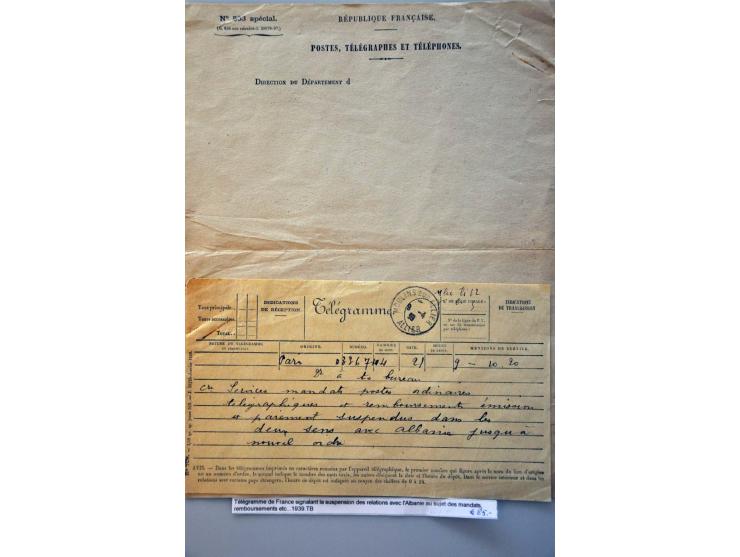 N° 853 spécial.
RÉPUBLIQUE FRANÇAISE.
POSTES, TÉLÉGRAPHES ET TÉLÉPHONES.
DIRECTION DU DÉPARTEMENT d
Taxe principale.
Taxes accessoires
TOTAL
INDICATIONS DE RÉCEPTION.
Télégramme
MOULINS
ALLIER
INDICATIONS DE TRANSMISSION
ORIGINE. NUMÉRO. DATE. MENTIONS DE SERVICE.
Paris 03367 104 21 9 - 10.20
à ts bureau
Services mandats postes ordinaires
télégraphiques et remboursements émission
et paiement suspendus dans les
deux sens avec Albanie jusqu'à
nouvel ordre
AVIS. — Dans les télégrammes imprimés en caractères romains par l'appareil télégraphique, le premier nombre qui figure après le nom du lieu d'origine
est un numéro d'ordre, le second indique le nombre des mots taxés, les autres désignent la date et l'heure de dépôt. Dans le service intérieur et dans les
relations avec certains pays étrangers, l'heure de dépôt est indiquée au moyen des chiffres de 0 à 24.
Télégramme de France signalant la suspension des relations avec l'Albanie au sujet des mandats,
remboursements etc...1939.TB
€ 85.-